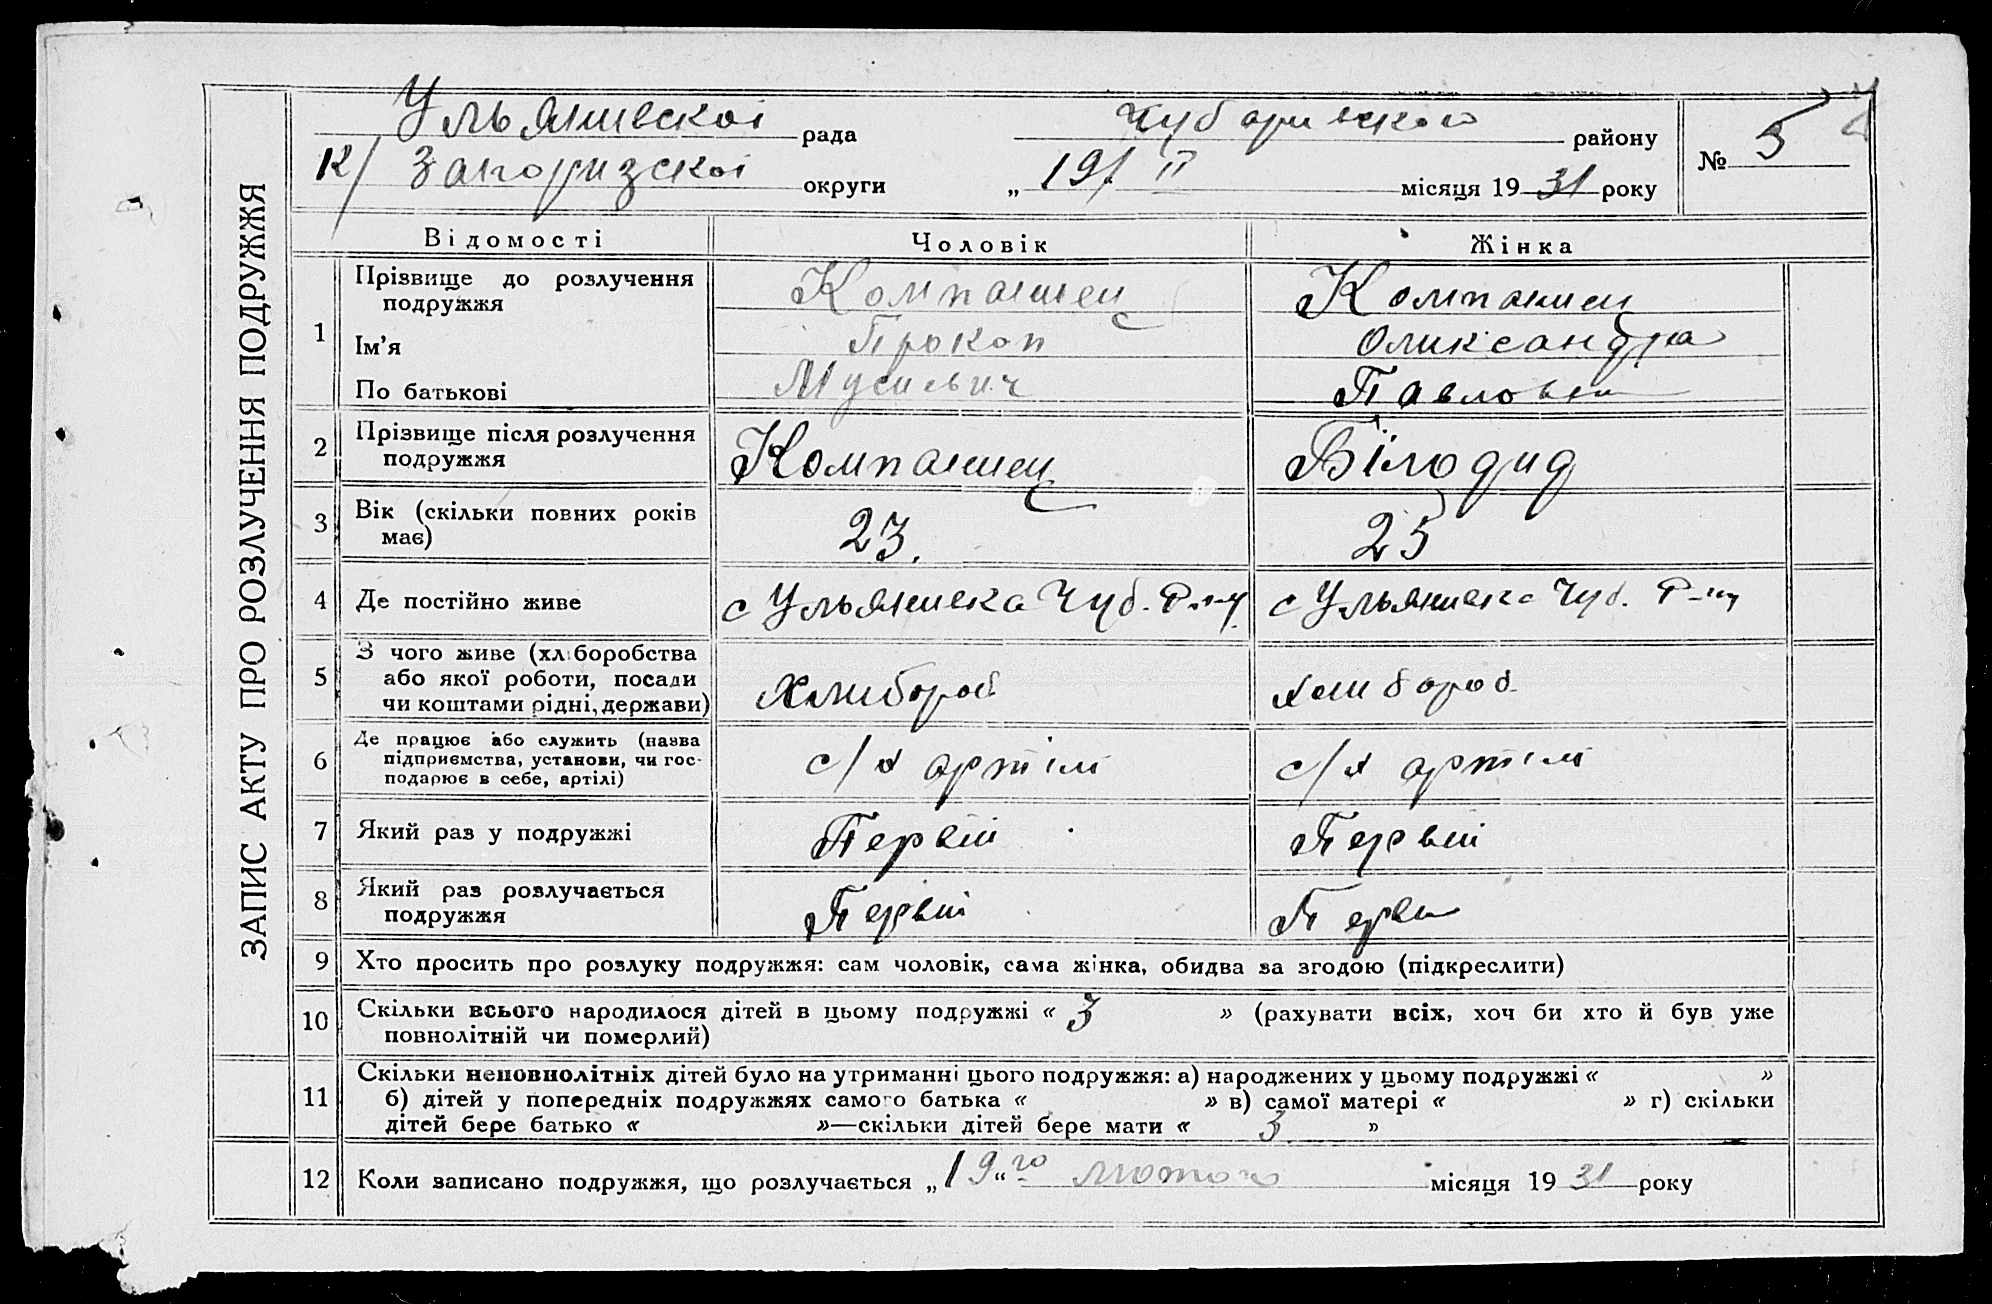 ЗАПИС АКТУ ПРО РОЗЛУЧЕННЯ ПОДРУЖЖЯ
Ульянивскоі рада Чубаривского району № 5
К/ Запоризскоі округи „ 19/ II місяця 1931 року
Відомості Чоловік Жінка
1 Прізвище до розлучення подружжя Компаниец Компаниец
Ім'я Прокоп Олександра
По батькові Мусиевич Павловна
2 Прізвище після розлучення подружжя Компаниец Білодид
3 Вік (скільки повних років має) 23. 25
4 Де постійно живе с Ульянивка Чуб. Р-н-у. с Ульянивка Чуб. Р-ну
5 З чого живе (хліборобства або якої роботи, посади чи коштами рідні, держави) хлибороб хлибороб
6 Де працює або служить (назва підприємства, установи, чи господарює в себе, артілі) с/х артілі с/х артілі
7 Який раз у подружжі Первій Первій
8 Який раз розлучається подружжя Первій Перви
9 Хто просить про розлуку подружжя: сам чоловік, сама жінка, обидва за згодою (підкреслити)
10 Скільки всього народилося дітей в цьому подружжі « 3 » (рахувати всіх, хоч би хто й був уже
повнолітній чи померлий)
11 Скільки неповнолітніх дітей було на утриманні цього подружжя: а) народжених у цьому подружжі « »
б) дітей у попередніх подружжях самого батька « » в) самої матері « » г) скільки
дітей бере батько « »—скільки дітей бере мати « 3 »
12 Коли записано подружжя, що розлучається „ 19 “ го лютого місяця 1931 року